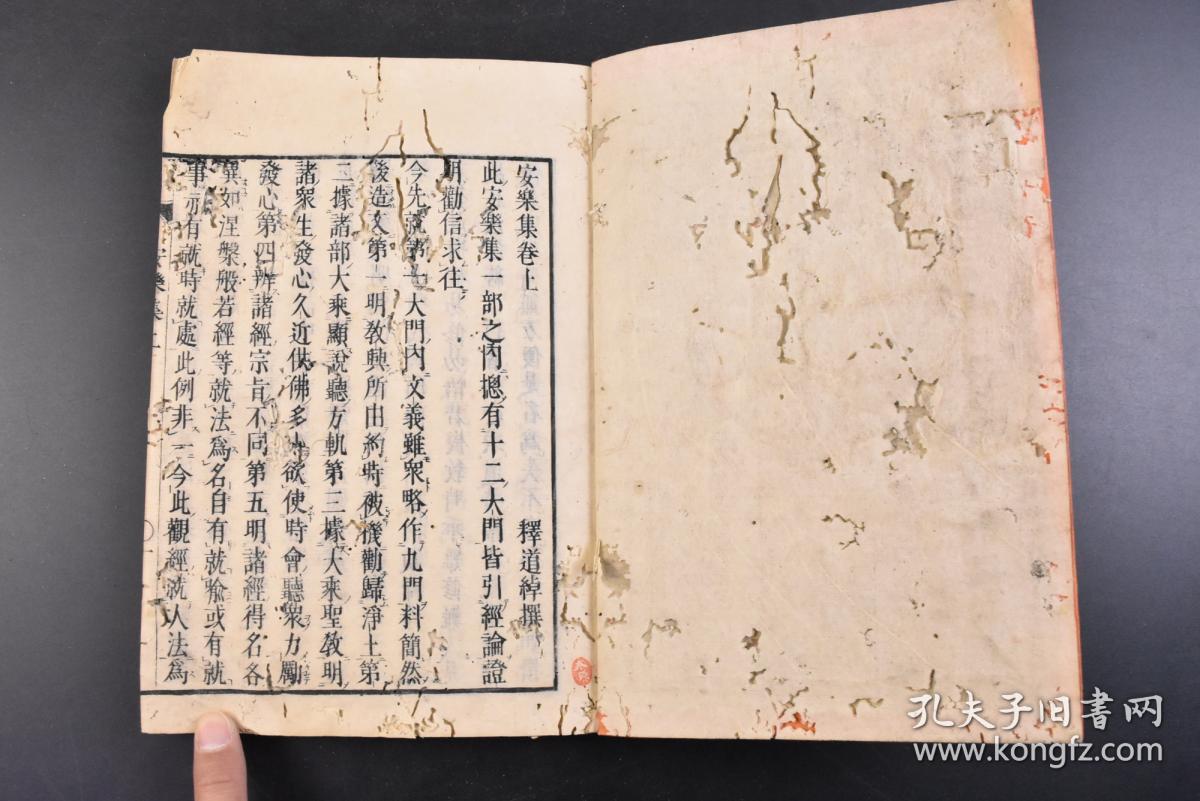 安樂集卷上　釋道綽撰
此安樂集一部之內摠有十二大門皆引經論證
明勸信求往
今先就第一大門內文義雖衆略作九門料簡然
後造文第一明教興所由約時被機勸歸淨土第
二據諸部大乘顯說聽方軌第三據大乘聖教明
諸衆生發心久近供佛多少欲使時會聽衆力勵
發心第四辨諸經宗旨不同第五明諸經得名各
異如涅槃般若經等就法爲名自有就喩或有就
事亦有就時就處此例非一今此觀經就人法爲
安樂集上
孔夫子旧書网
www.kongfz.com